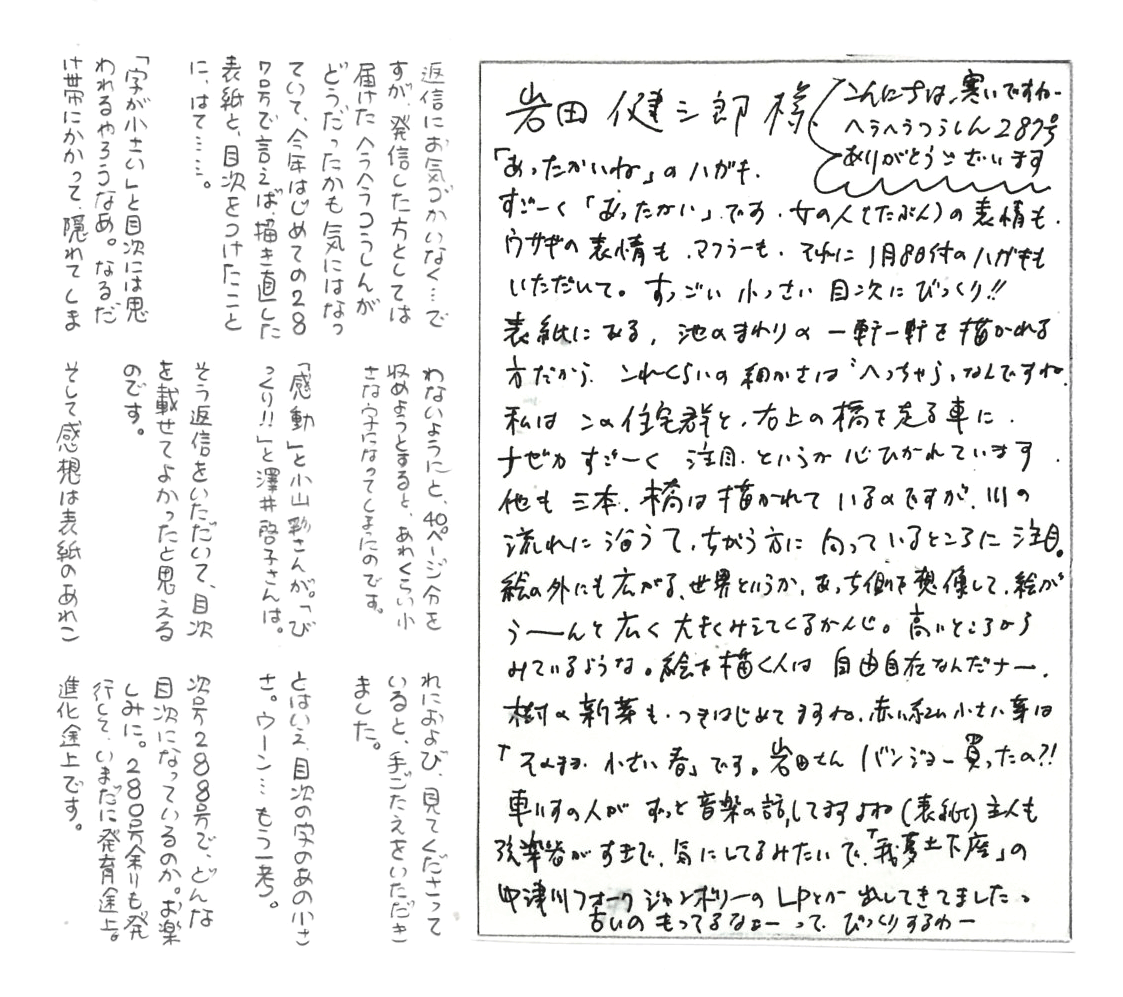 岩田健三郎様
こんにちは、寒いですねー
ヘラヘラつうしん287号
ありがとうございます
「あったかいね」のハガキ、
すごーく「あったかい」です。女の人(たぶん)の表情も、
ウサギの表情も、マフラーも、それに1月8日付のハガキも
いただいて。すっごい小っさい目次にびっくり!!
表紙にある、池のまわりの一軒一軒を描かれる
方だから、これくらいの細かさは“へっちゃら”なんですね。
私はこの住宅群と、右上の橋を走る車に、
ナゼカすごーく注目、というか心ひかれています。
他も三本、橋は描かれているのですが、川の
流れに沿うて、ちがう方に向っているところに注目。
絵の外にも広がる、世界というか、あっち側を想像して、絵が
うーーんと広く大きくみえてくるかんじ。高いところから
みているような。絵を描く人は自由自在なんだナー、
樹の新芽も、つきはじめてますね、赤い小さい芽は
「そのまま、小さい春」です。岩田さんバンジョー買ったの?!
車いすの人がずっと音楽の話してますよね(表紙)主人も
弦楽器がすきで、気にしてるみたいで、「我夢土下座」の
中津川フォークジャンボリーのLPとか出してきてました。
古いのもってるなぁーって、びっくりするわー
返信にお気づかいなく…で
すが、発信した方としては
届けたヘラヘラつうしんが
どうだったかも気にはなっ
ていて、今年はじめての28
7号で言えば、描き直した
表紙と、目次をつけたこと
に、はて……。
「字が小さい」と目次には思
われるやろうなあ。なるだ
け帯にかかって、隠れてしま
わないようにと、40ページ分を
収めようとすると、あれくらい小
さな字になってしまったのです。
「感動」と小山彰さんが。「び
っくり!!」と澤井啓子さんは。
そう返信をいただいて、目次
を載せてよかったと思える
のです。
そして感想は表紙のあれこ
れにおよび、見てくださって
いると、手ごたえをいただき
ました。
とはいえ、目次の字のあの小さ
さ。ウーン…もう一考。
次号288号で、どんな
目次になっているのか。お楽
しみに。280号余りも発
行して、いまだに発育途上。
進化途上です。